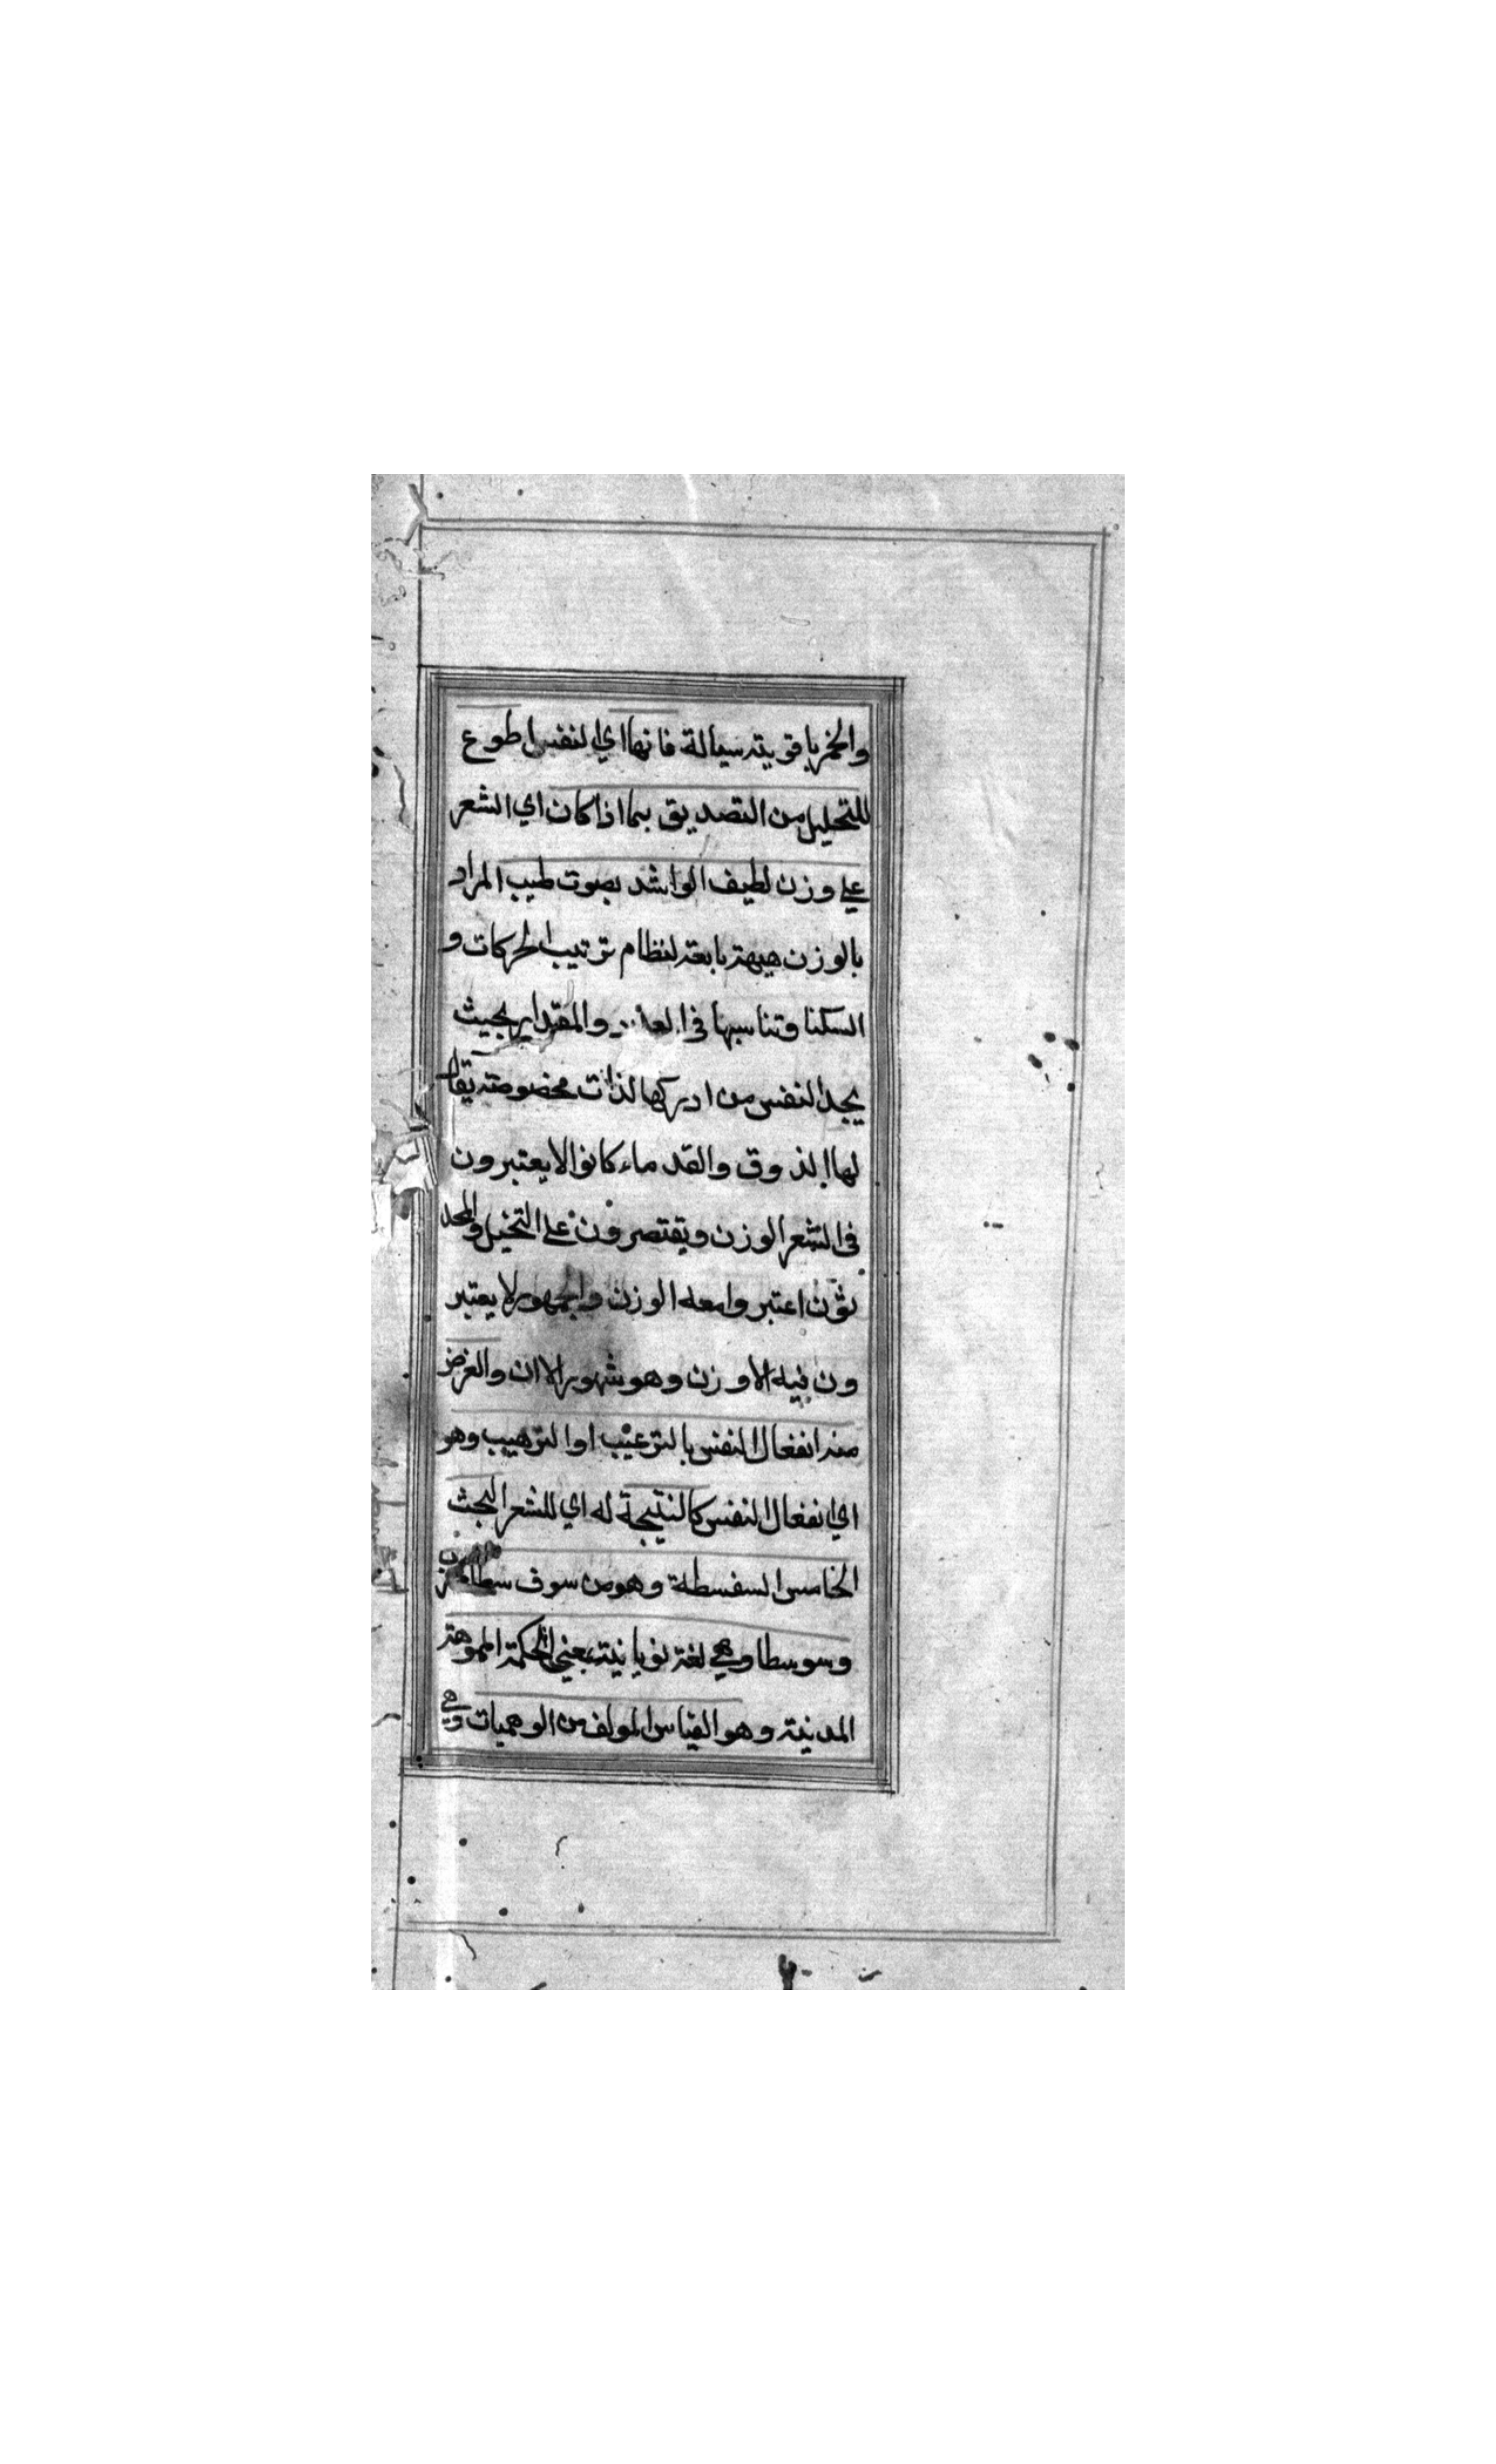 والخمر ياقوتية سيالة فانها اي النفس اطوع
للتخييل من التصديق سيما اذا كان اي الشعر
علي وزن لطيف الوانشد بصوت طيب المراد
بالوزن هيهة تابعة لنظام ترتيب الحركات و
السكنا وتناسبها في والمقدار بحيث
يجد النفس من ادركها لذات مخصوصة يقال
لها الذوق والقدماء كانوا لا يعتبرون
في الشعر الوزن ويقتصرون علي التخيل والمحد
ثون اعتبروا معه الوزن والجمهور لا يعتبر
ون فيه الا وزن وهو شهور الا ان والغرض
منه انفعال النفس بالترغيب او الترهيب وهو
اي انفعال النفس كالنتيجة له اي للشعر البحث
الخامس السفسطة وهو من سوف سطا
وسوسطا وهي لغة يونانية بمعني الحكمة المموهة
المدنية وهو القياس المولف من الوهميات وهي